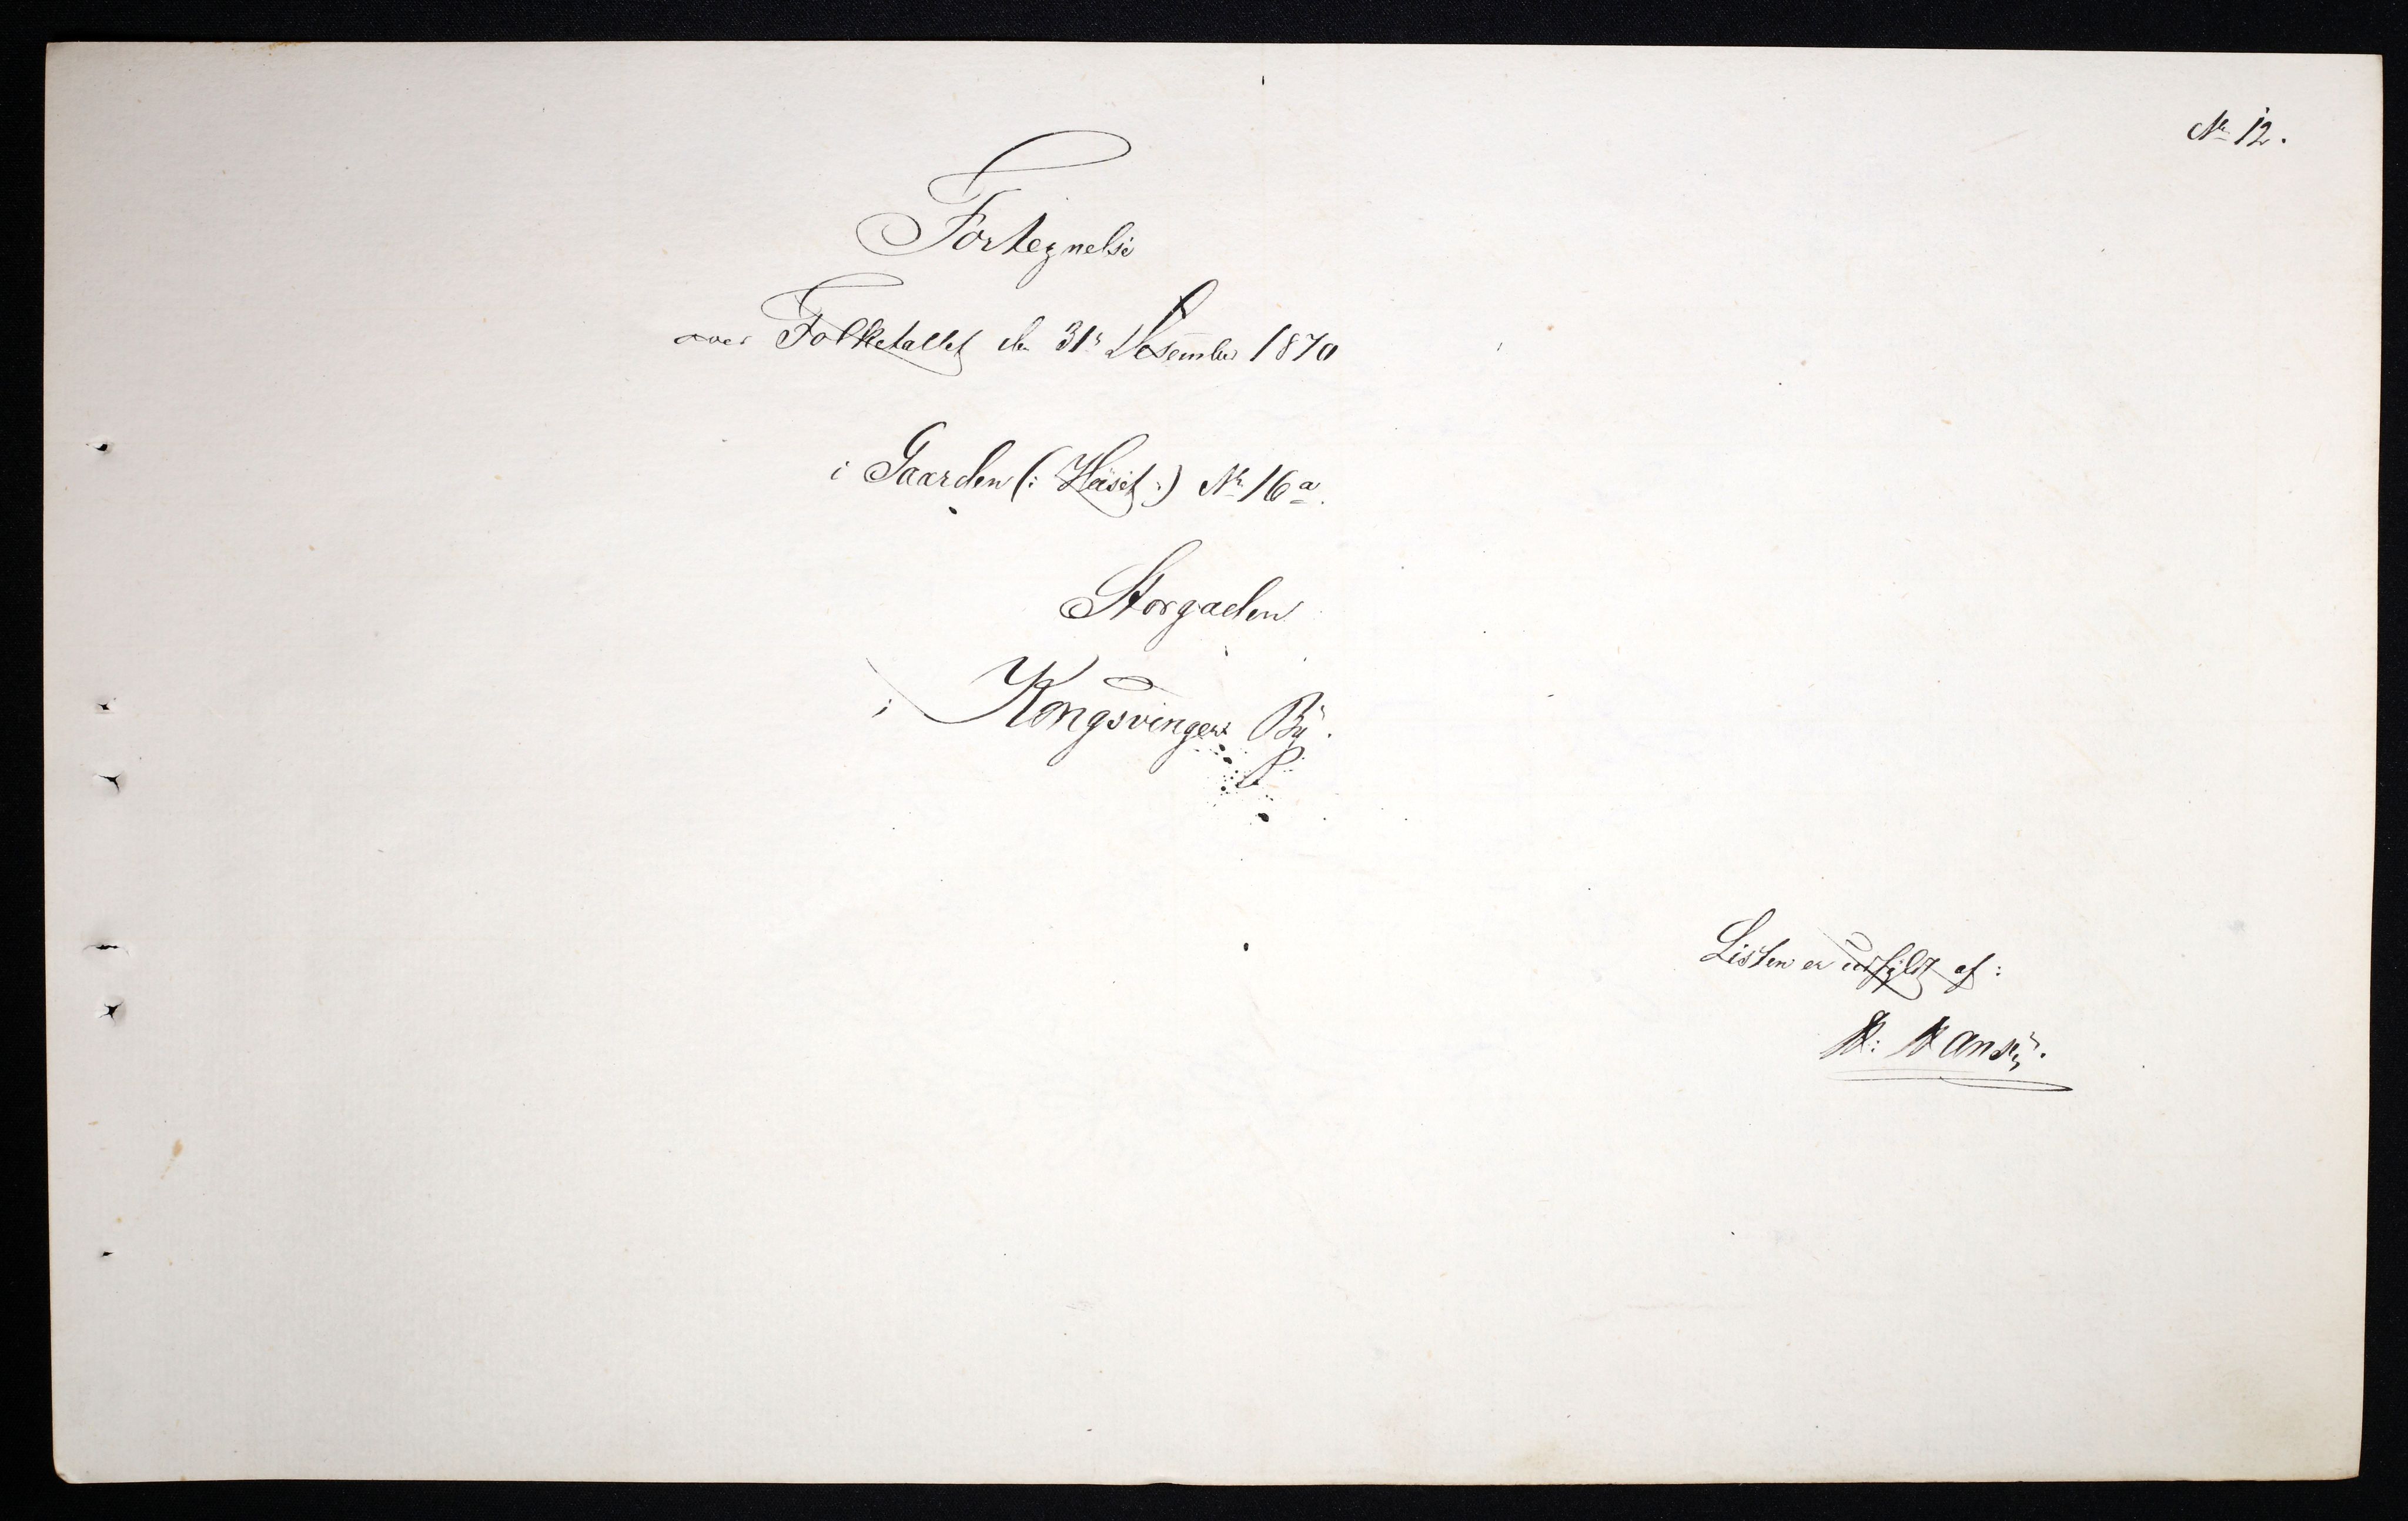 No 12.
Fortegnelse
over Folketallet den 31te Desember 1870
i Gaarden (: Huset :) No 16 a.
Storgaden
i Kongsvinger By.
Listen er udfyldt af:
H: Hansen.